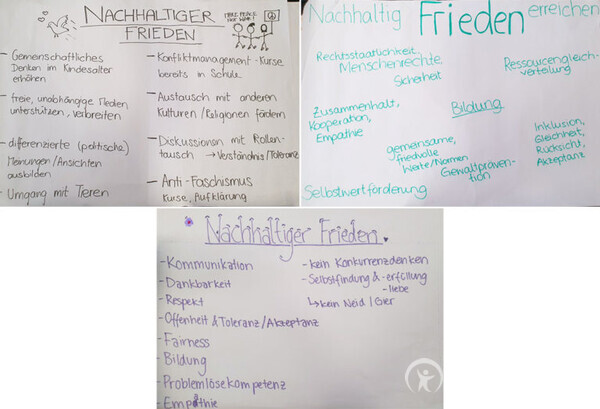 NACHHALTIGER
FRIEDEN
- Gemeinschaftliches
Denken im Kindesalter
erhöhen
- freie, unabhängige Medien
unterstützen, verbreiten
- differenzierte (politische)
Meinungen/Ansichten
ausbilden
- Umgang mit Tieren
- Konfliktmanagement-Kurse
bereits in Schule
- Austausch mit anderen
Kulturen/Religionen fördern
- Diskussionen mit Rollen-
tausch → Verständnis/Toleranz
- Anti-Faschismus
Kurse, Aufklärung
Nachhaltig Frieden erreichen
Rechtsstaatlichkeit
Menschenrechte
Sicherheit
Ressourcengleich-
verteilung
Zusammenhalt,
Kooperation,
Empathie
Bildung
gemeinsame,
friedvolle
Werte/Normen
Gewaltpräven-
tion
Inklusion,
Gleichheit,
Rücksicht,
Akzeptanz
Selbstwertförderung
Nachhaltiger Frieden
- Kommunikation
- Dankbarkeit
- Respekt
- Offenheit & Toleranz/Akzeptanz
- Fairness
- Bildung
- Problemlösekompetenz
- Empathie
- kein Konkurrenzdenken
- Selbstfindung & -erfüllung
-liebe
↳ kein Neid / Gier